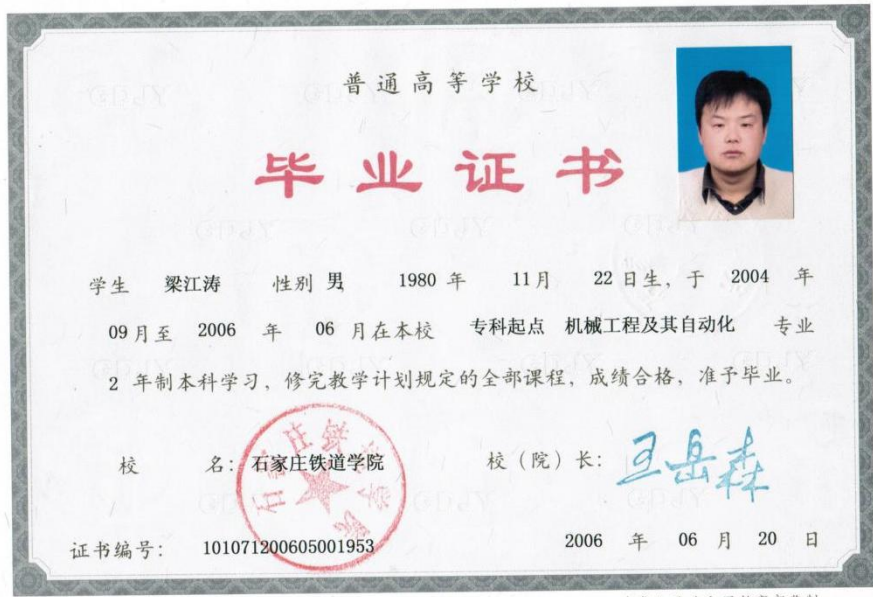 普通高等学校
毕业证书
学生 梁江涛 性别 男 1980 年 11月 22 日生，于 2004 年
09月至 2006 年 06 月在本校 专科起点 机械工程及其自动化 专业
2 年制本科学习，修完教学计划规定的全部课程，成绩合格，准予毕业。
校 名：石家庄铁道学院 校（院）长：王岳森
石家庄铁道学院
证书编号： 101071200605001953 2006 年 06 月 20 日